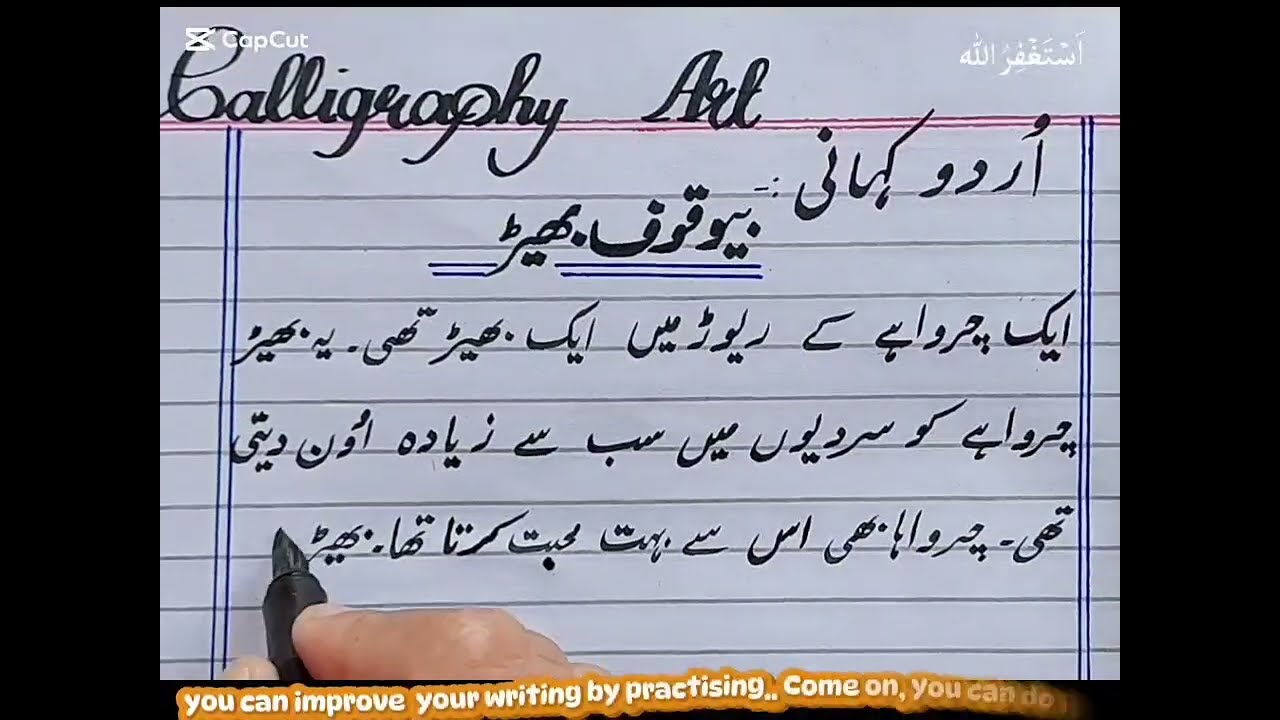 CapCut
اَسْتَغْفِرُ اللّٰه
Calligraphy Art
اُردو کہانی :-
بیوقوف بھیڑ
ایک چرواہے کے ریوڑ میں ایک بھیڑ تھی۔ یہ بھیڑ
چرواہے کو سردیوں میں سب سے زیادہ اُون دیتی
تھی۔ چرواہا بھی اس سے بہت محبت کرتا تھا۔ بھیڑ
you can improve your writing by practising.. Come on, you can do